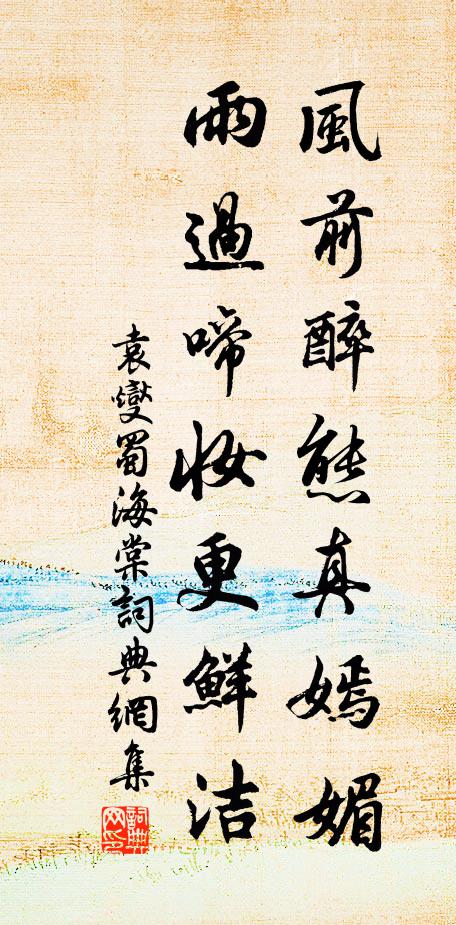 風前醉態真嫣媚
雨過啼妝更鮮洁
袁燮蜀海棠詞典網集
詞典网印